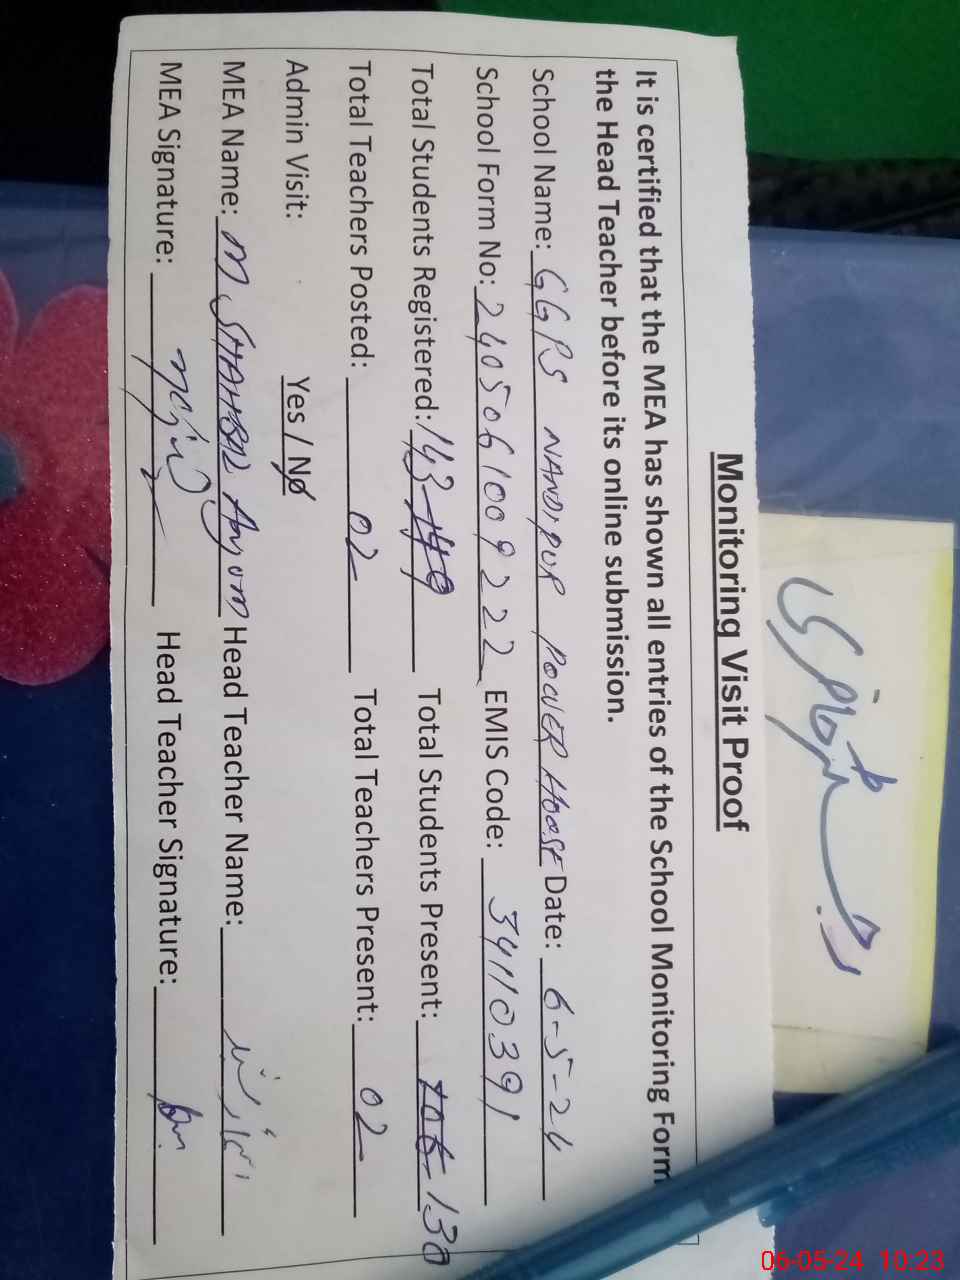 Monitoring Visit Proof
It is certified that the MEA has shown all entries of the School Monitoring Form
the Head Teacher before its online submission.
School Name: GGPS NANDIPUR POWER HOOSE Date: 6-5-24
School Form No: 2405061009222 EMIS Code: 34110391
Total Students Registered: 143 Total Students Present: 130
Total Teachers Posted: 02 Total Teachers Present: 02
Admin Visit: Yes / No
MEA Name: M SHAHBAZ Head Teacher Name:
MEA Signature: Head Teacher Signature:
06-05-24 10:23